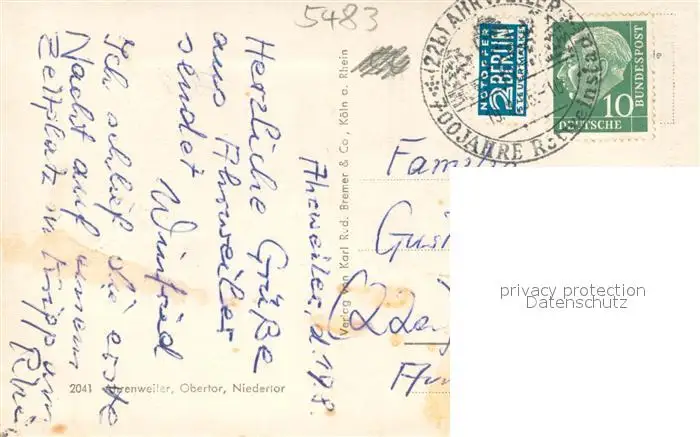 5483
Ahrweiler, d. 1.9.8.
Herzliche Grüße
aus Ahrweiler
sendet
Winfried
Ich schlief die erste
Nacht auf einem
Zeltplatz in Kripp am
Rhein
2041 Ahrenweiler, Obertor, Niedertor
Verlag von Karl R.v.d. Bremer & Co., Köln a. Rhein
(22b) AHRWEILER
700 JAHRE
NOTOPFER
2 BERLIN
STEUERMARKE
10
DEUTSCHE
BUNDESPOST
Familie
(22
privacy protection
Datenschutz